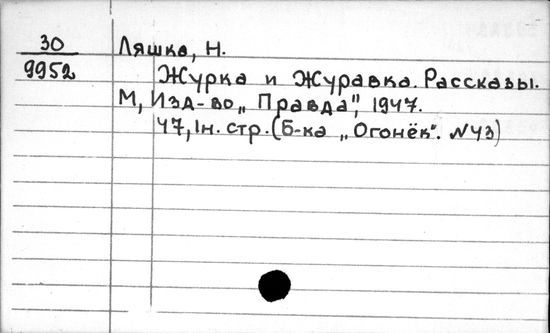 30 Ляшко, Н.
9952 Журка и Журавка. Рассказы.
М, Изд-во „Правда", 1947.
47, 1н. стр. (Б-ка „Огонёк". N43)